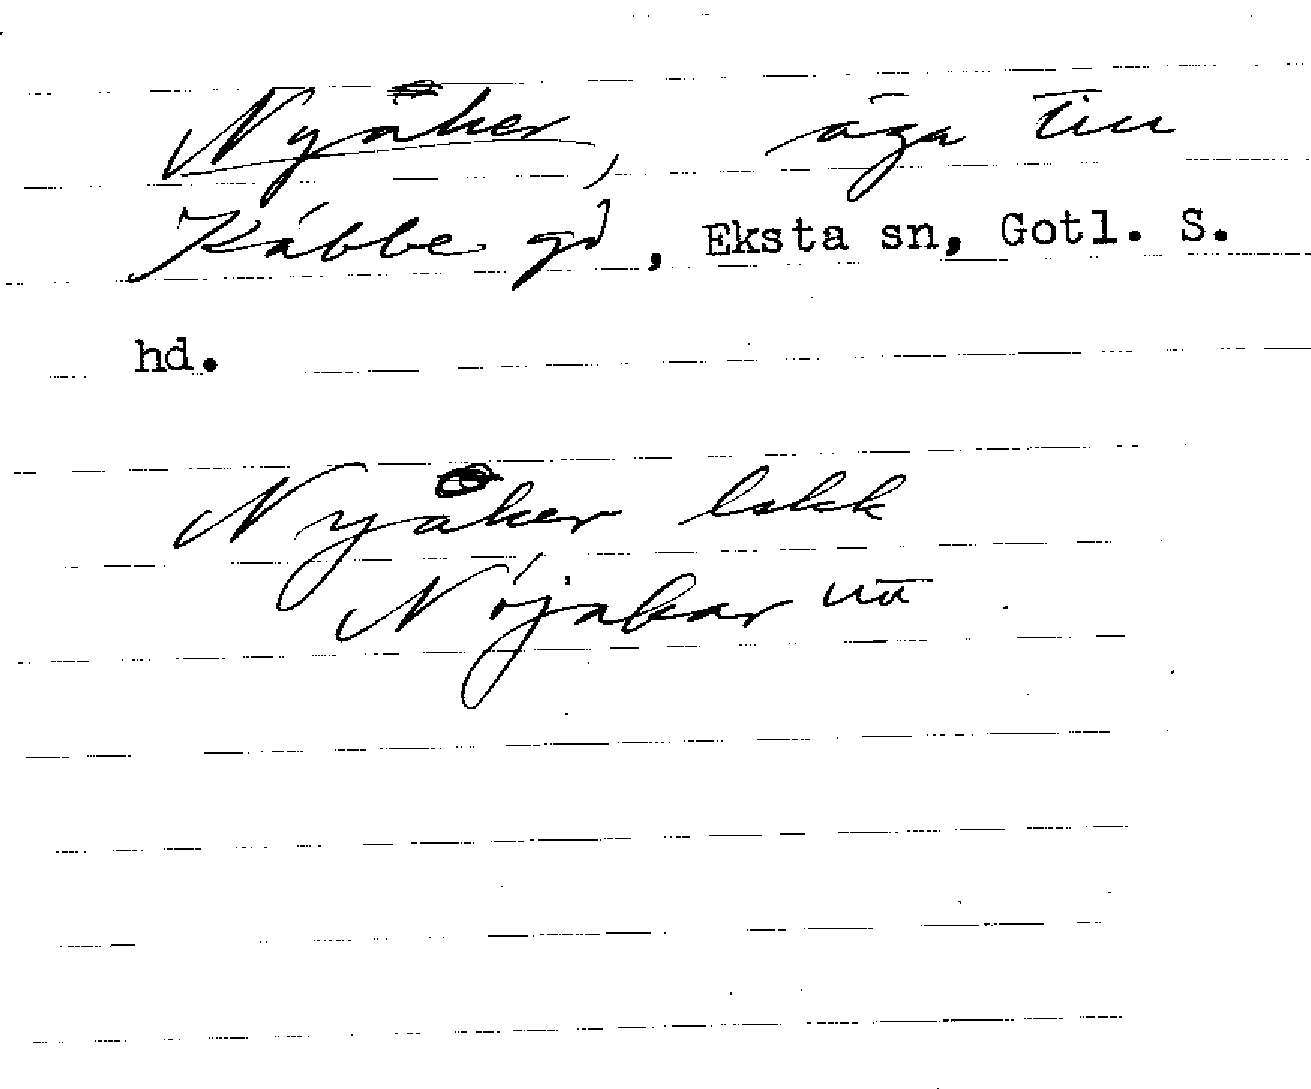 Nyåker, äga till
Kábbe gd, Eksta sn, Gotl. S.
hd.
Nyåker lskk
Nöjakar